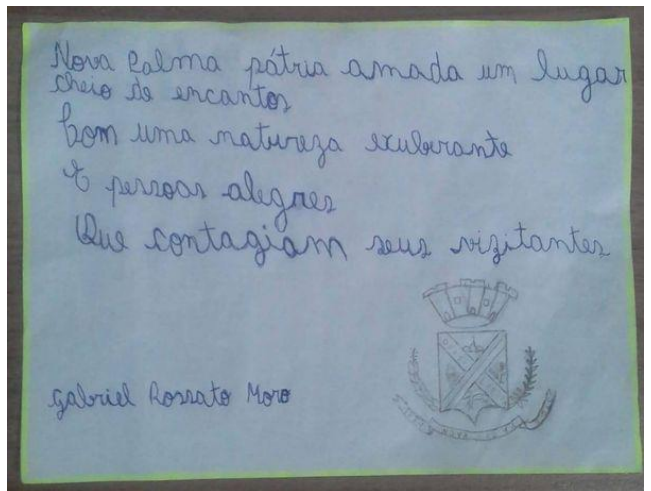 Nova Palma pátria amada um lugar
cheio de encantos
Com uma natureza exuberante
E pessoas alegres
Que contagiam seus vizitantes
Gabriel Rossato Moro